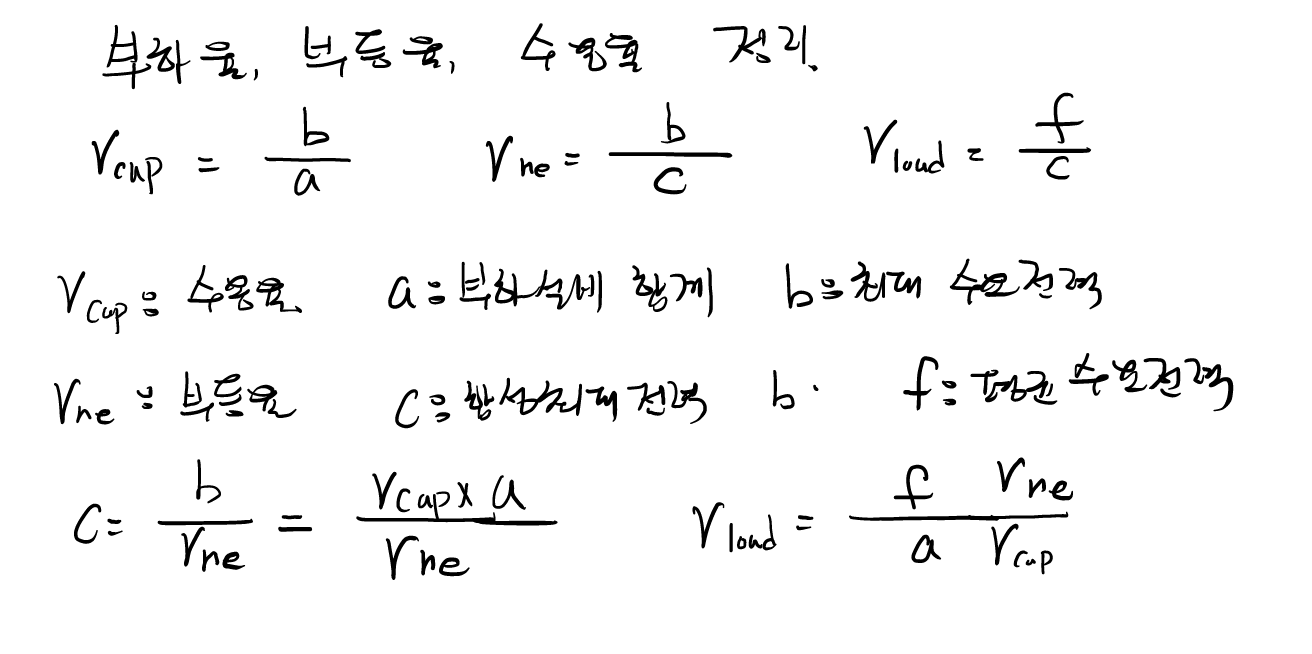 부하율, 부등율, 수용율 정리.
r_cap = b/a r_ne = b/c r_load = f/c
r_cap : 수용율 a : 부하설비 합계 b : 최대 수요전력
r_ne : 부등율 c : 합성최대전력 b · f : 평균 수요전력
c = b/r_ne = r_cap x a/r_ne r_load = f r_ne/a r_cap